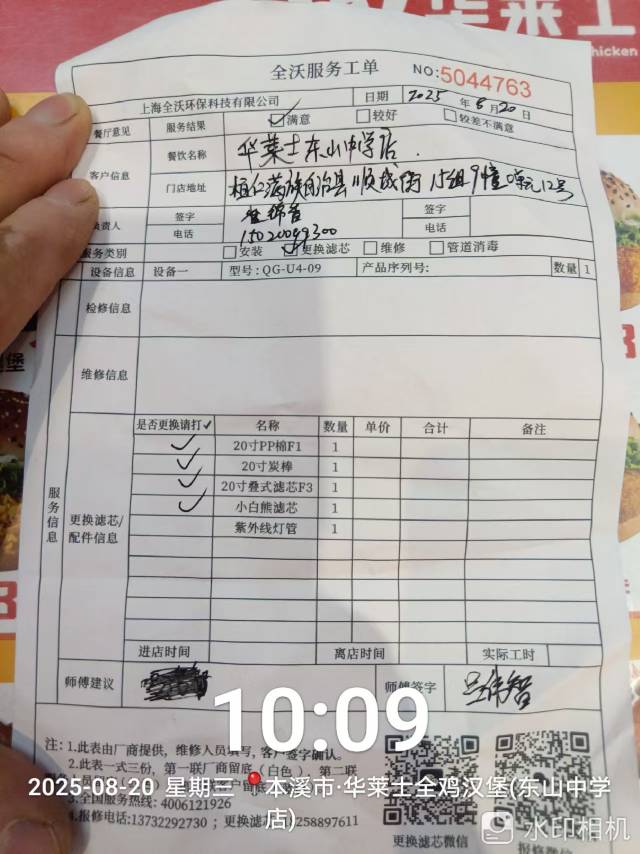 华莱士
Chicken
全沃服务工单
NO:5044763
上海全沃环保科技有限公司
日期 2025 年 8 月 20 日
餐厅意见 服务结果 ✓满意 □较好 □较差不满意
客户信息 餐饮名称 华莱士东山中学店
门店地址 桓仁满族自治县顺城街15组9幢 单元12号
负责人 签字 签字
电话 15020099300 电话
服务类别 □安装 ✓更换滤芯 □维修 □管道消毒
设备信息 设备一 型号:QG-U4-09 产品序列号: 数量 1
检修信息
维修信息
服务信息
更换滤芯/配件信息
是否更换请打✓ 名称 数量 单价 合计 备注
✓ 20寸PP棉F1 1
✓ 20寸炭棒 1
✓ 20寸叠式滤芯F3 1
✓ 小白熊滤芯 1
紫外线灯管 1
进店时间 离店时间 实际工时
师傅建议 师傅签字
10:09
注: 1.此表由厂商提供, 维修人员填写, 客户签字确认。
2.此表一式三份, 第一联厂商留底(白色)、第二联
2025-08-20 星期三 本溪市·华莱士全鸡汉堡(东山中学店)
3.全国服务热线: 4006121926
4.报修电话: 13732292730; 更换滤芯
258897611
更换滤芯微信
报修微信
水印相机